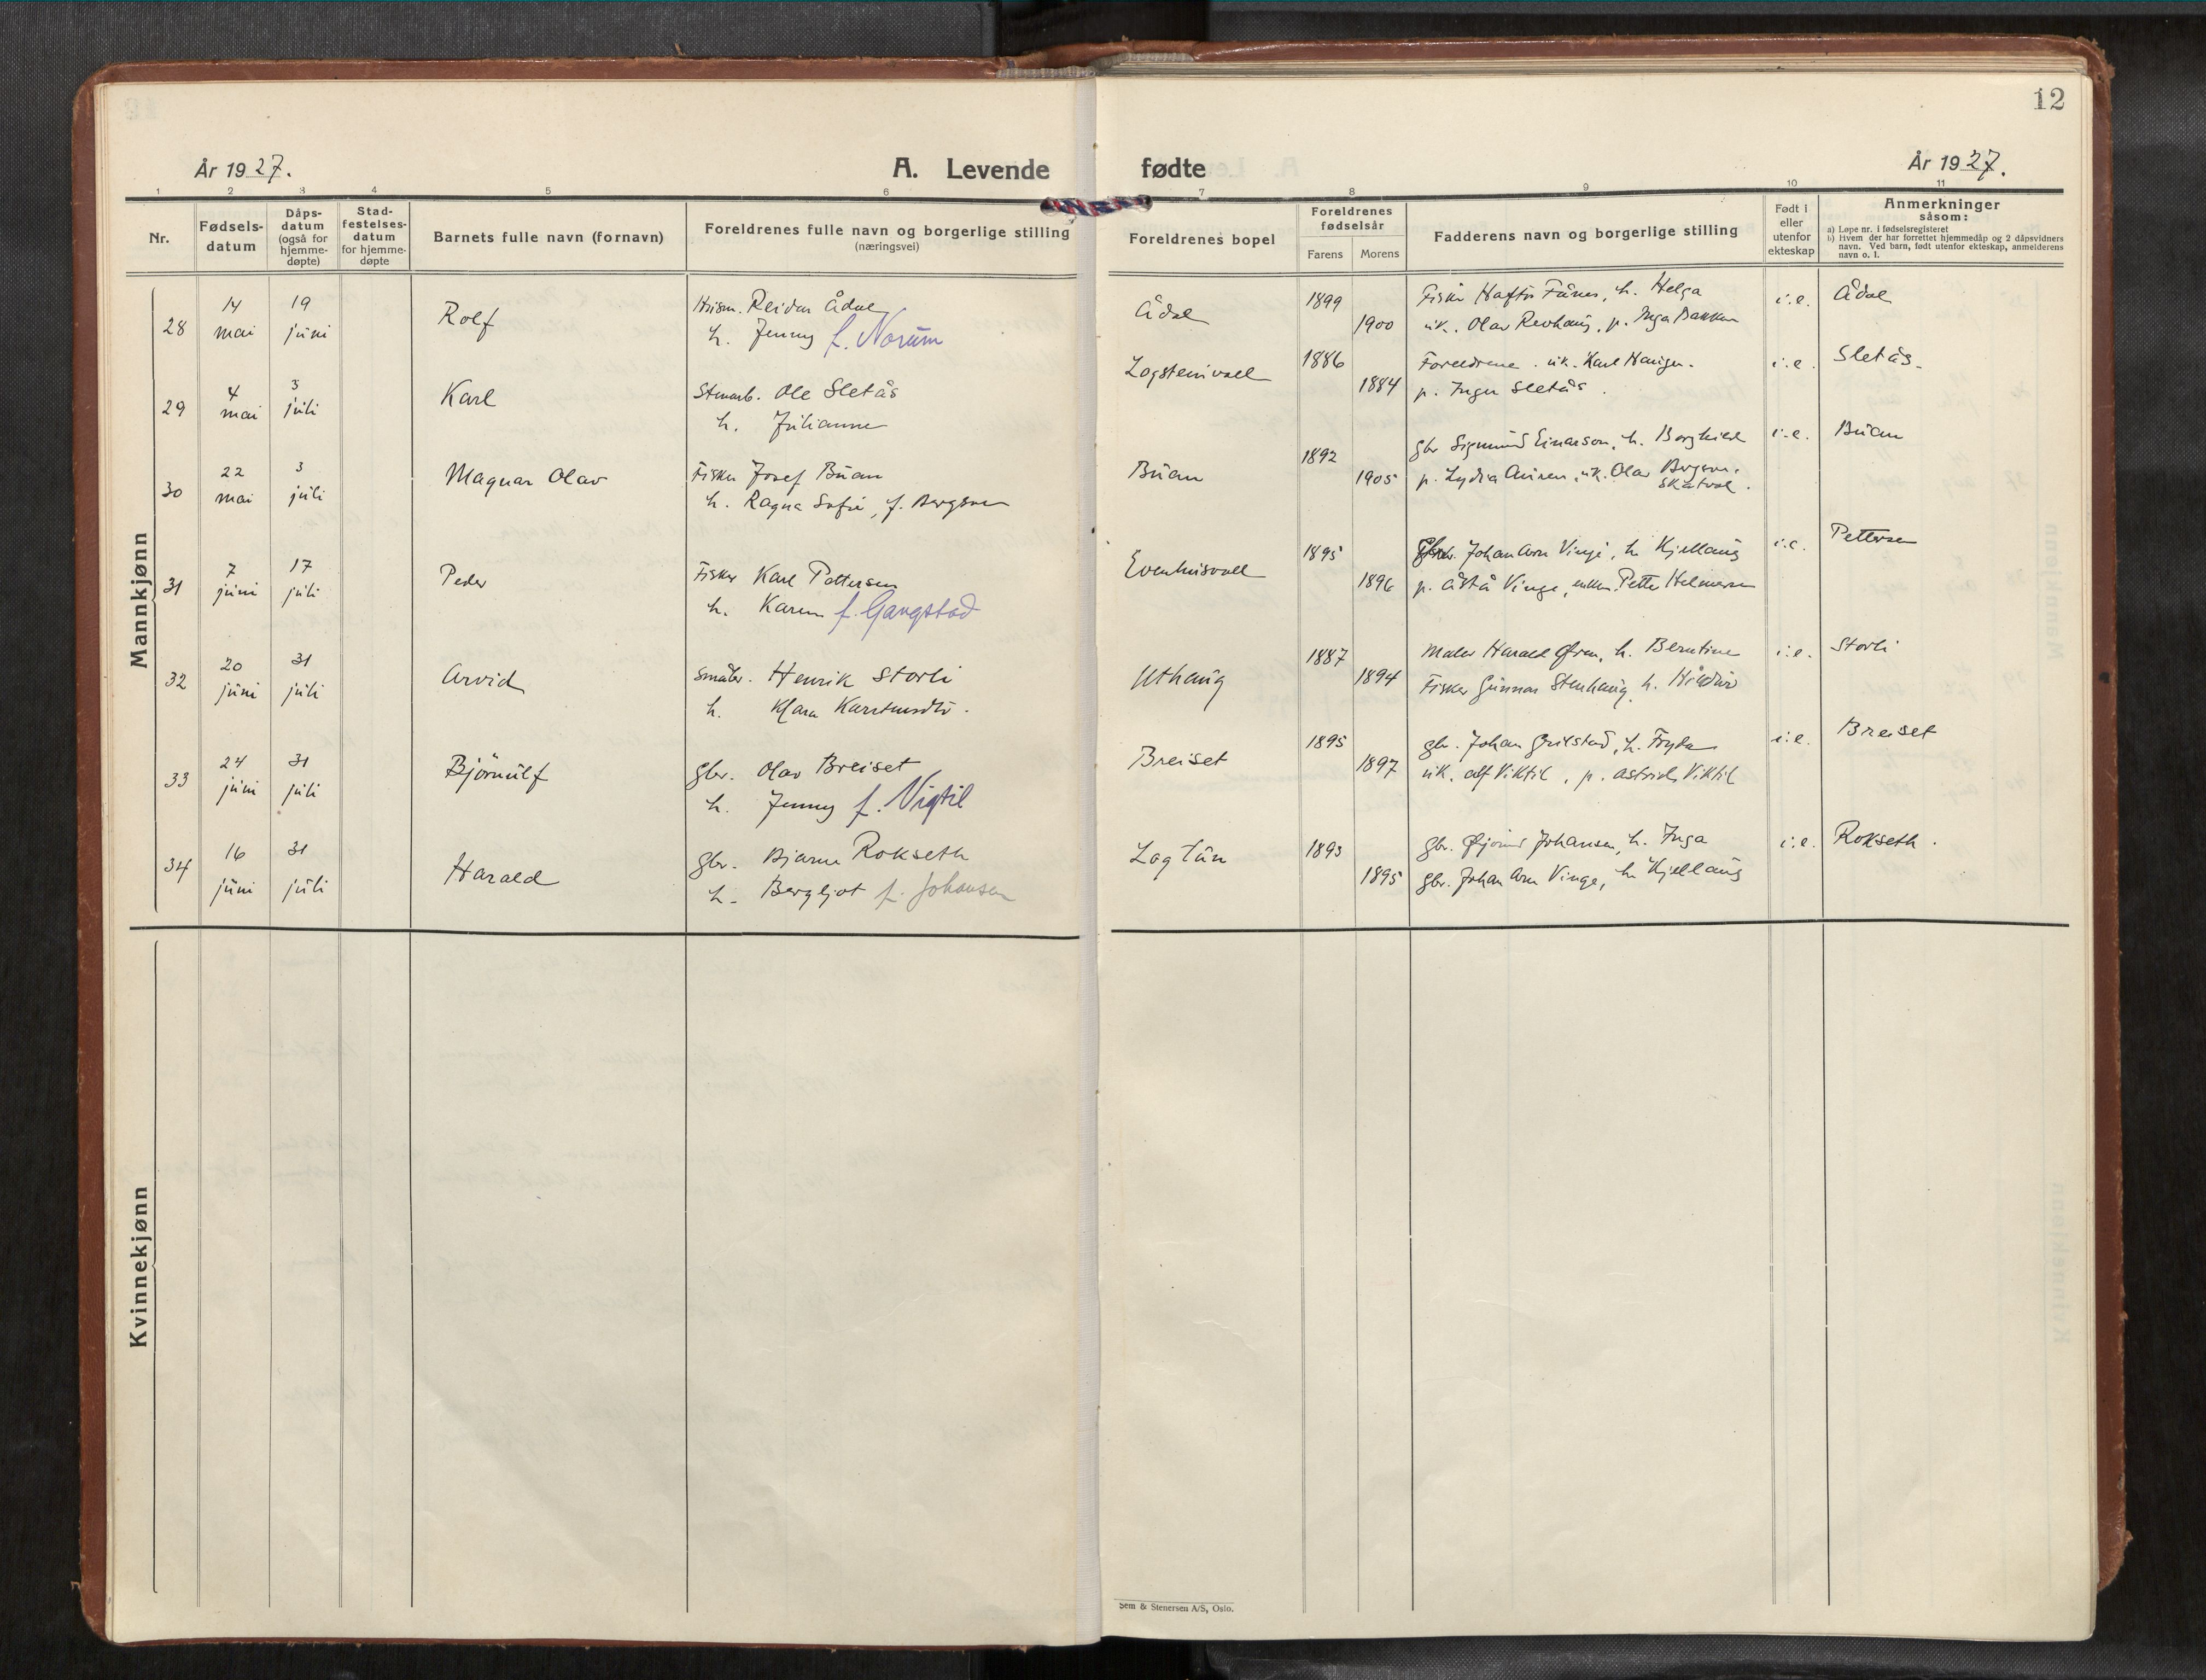 12
År 1927.
A. Levende fødte
År 1927.
1 2 3 4 5 6 7 8 9 10 11
Nr.
Fødsels-
datum
Dåps-
datum
(også for
hjemme-
døpte)
Stad-
festelses-
datum
for hjemme-
døpte
Barnets fulle navn (fornavn)
Foreldrenes fulle navn og borgerlige stilling
(næringsvei)
Foreldrenes bopel
Foreldrenes
fødselsår
Farens Morens
Fadderens navn og borgerlige stilling
Født i
eller
utenfor
ekteskap
Anmerkninger
såsom:
a) Løpe nr. i fødselsregisteret
b) Hvem der har forrettet hjemmedåp og 2 dåpsvidners
navn. Ved barn, født utenfor ekteskap, anmelderens
navn o. l.
Mannkjønn
28
14
mai
19
juni
Rolf
Reidar Ådal
h. Jenny f. Norum
Ådal
1899
1900
Fisker Haftor Fånes, h. Helga
uk. Olav Revhaug, p. Inga Bakken
i.e.
Ådal
29
4
mai
3
juli
Karl
Stenarb. Ole Sletås
h. Julianne
1886
1884
Foreldrene. uk. Karl Haugen.
p. Inger Sletås.
i.e.
Sletås.
30
22
mai
3
juli
Magnar Olav
Fisker Josef Buan
h. Ragna Sofie, f. Bergsen
Buan
1892
1905
gbr Sigmund Einarson, h. Borghild
p. Lydia Auren, uk. Olav
Skatval.
i.e.
Buan
31
7
juni
17
juli
Peder
Fisker Karl Pettersen
h. Karen f. Gangstad
Evenhusvall
1895
1896
Johan Arn Vinge, h. Kjellaug
p. Åsta Vinge, enkem. Petter Helmersen
i.e.
Pettersen
32
20
juni
31
juli
Arvid
Småbr. Henrik Storli
h. Klara
Uthaug
1887
1894
Maler Harald Øren, h. Berntine
Fisker Gunnar Stenhaug, h.
i.e.
Storli
33
24
juni
31
juli
Bjørnulf
gbr. Olav Breiset
h. Jenny f. Vigtil
Breiset
1895
1897
gbr. Johan Grilstad, h.
uk. Alf Viktil, p. Astrid Viktil
i.e.
Breiset
34
16
juni
31
juli
Harald
gbr. Bjarne Rokseth
h. Bergljot f. Johansen
Lagtun
1893
1895
gbr. Johansen, h. Inga
gbr. Johan Arn Vinge, h. Kjellaug
i.e.
Rokseth.
Kvinnekjønn
Sem & Stenersen A/S, Oslo.